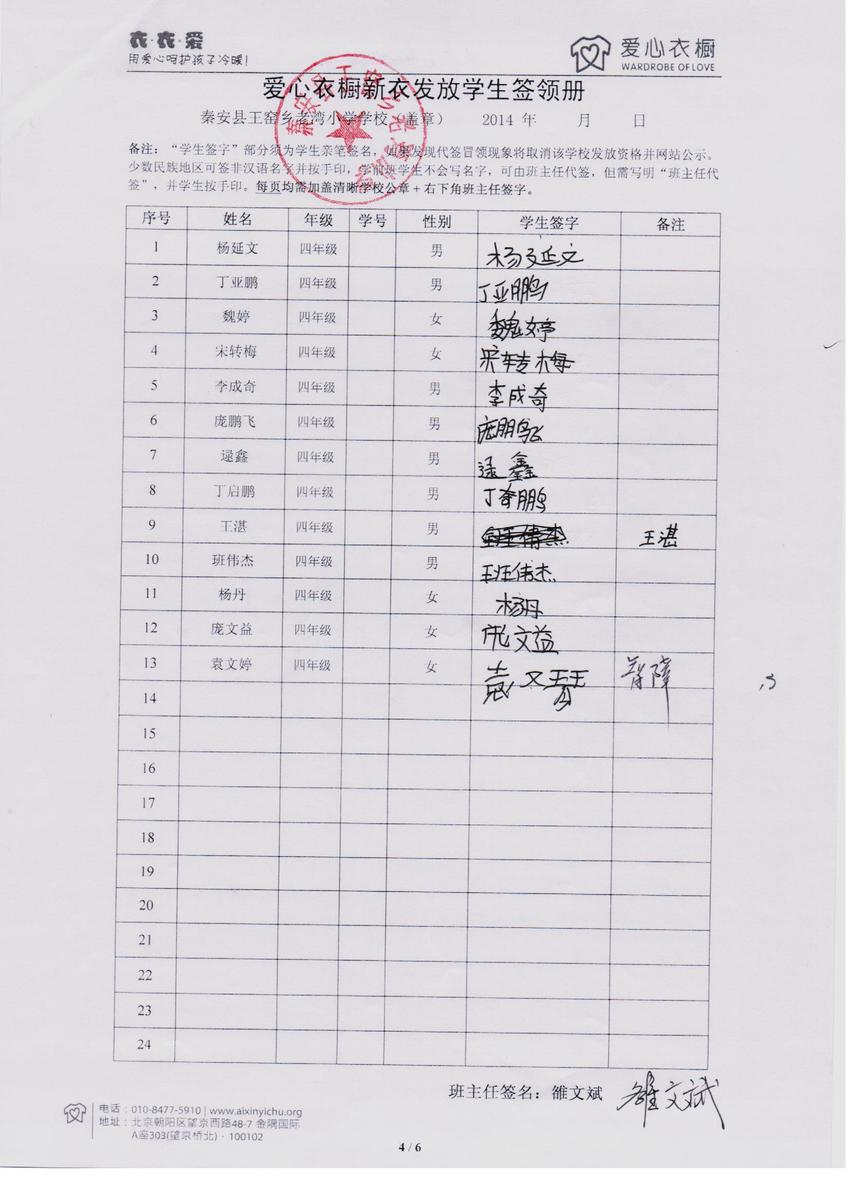 衣·衣·爱
用爱心呵护孩子冷暖！
爱心衣橱
WARDROBE OF LOVE
爱心衣橱新衣发放学生签领册
秦安县王窑乡老湾小学学校（盖章） 2014 年 月 日
备注：“学生签字”部分须为学生亲笔签名，如果发现代签冒领现象将取消该学校发放资格并网站公示。
少数民族地区可签非汉语名字并按手印，学前班学生不会写名字，可由班主任代签，但需写明“班主任代
签”，并学生按手印。每页均需加盖清晰学校公章+右下角班主任签字。
序号 姓名 年级 学号 性别 学生签字 备注
1 杨延文 四年级 男 杨延文
2 丁亚鹏 四年级 男 丁亚鹏
3 魏婷 四年级 女 魏婷
4 宋转梅 四年级 女 宋转梅
5 李成奇 四年级 男 李成奇
6 庞鹏飞 四年级 男 庞鹏飞
7 逯鑫 四年级 男 逯鑫
8 丁启鹏 四年级 男 丁奔鹏
9 王湛 四年级 男 王湛
10 班伟杰 四年级 男 班伟杰
11 杨丹 四年级 女 杨丹
12 庞文益 四年级 女 庞文益
13 袁文婷 四年级 女 袁文 智障
14
15
16
17
18
19
20
21
22
23
24
班主任签名：雒文斌 雒文斌
电话：010-8477-5910 | www.aixinyichu.org
地址：北京朝阳区望京西路48-7 金隅国际
A座303(望京桥北)·100102
4 / 6